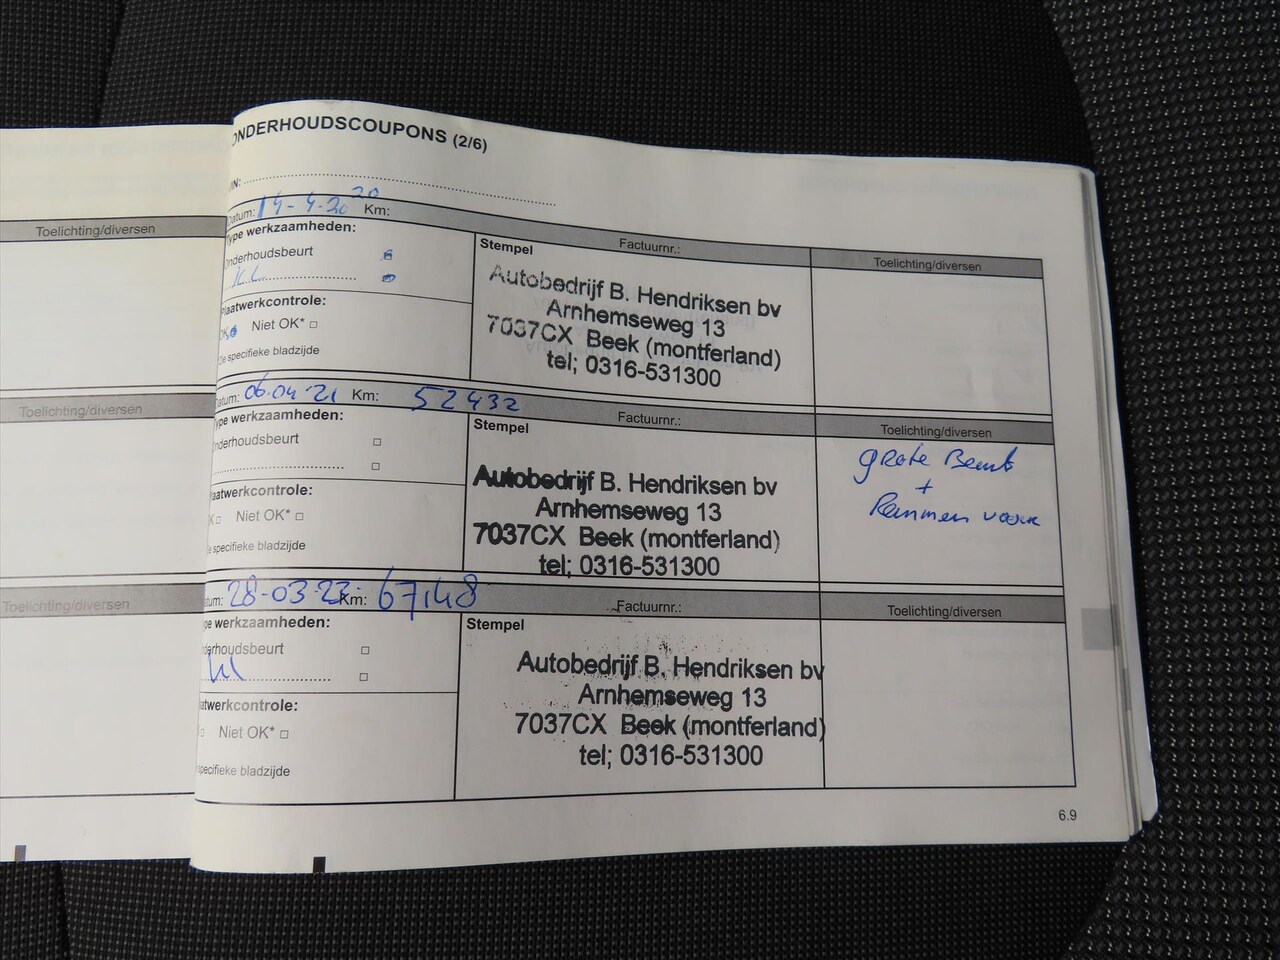 Toelichting/diversen
Toelichting/diversen
Toelichting/diversen
ONDERHOUDSCOUPONS (2/6)
Datum: 14-4-2020 Km:
Type werkzaamheden:
Onderhoudsbeurt
Plaatwerkcontrole:
Niet OK* □
specifieke bladzijde
Factuurnr.:
Stempel
Autobedrijf B. Hendriksen bv
Arnhemseweg 13
7037CX Beek (montferland)
tel; 0316-531300
Toelichting/diversen
Datum: 06.04.21 Km: 52432
Type werkzaamheden:
Onderhoudsbeurt □
□
Plaatwerkcontrole:
□ Niet OK* □
specifieke bladzijde
Factuurnr.:
Stempel
Autobedrijf B. Hendriksen bv
Arnhemseweg 13
7037CX Beek (montferland)
tel; 0316-531300
Toelichting/diversen
grote Beurt
+
Remmen voor
28-03-22 Km: 67148
werkzaamheden:
Onderhoudsbeurt □
□
Plaatwerkcontrole:
□ Niet OK* □
specifieke bladzijde
Factuurnr.:
Stempel
Autobedrijf B. Hendriksen bv
Arnhemseweg 13
7037CX Beek (montferland)
tel; 0316-531300
Toelichting/diversen
6.9